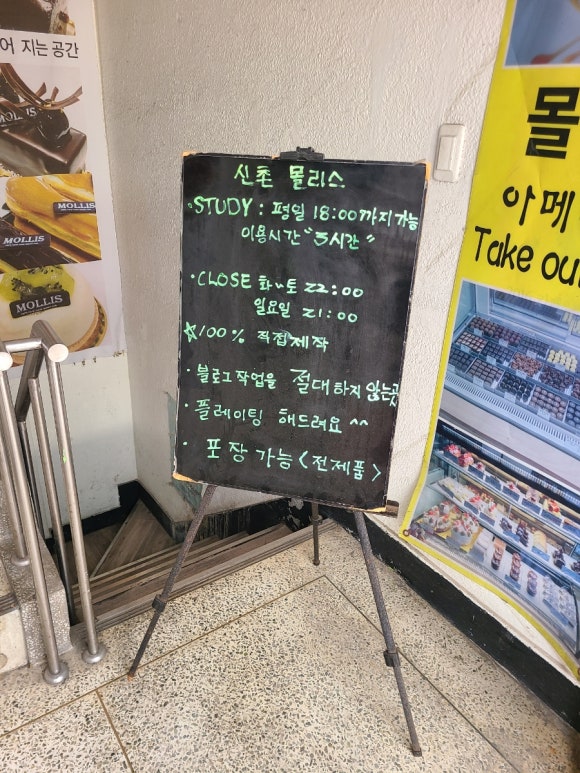 어 지는 공간
MOLLIS
MOLLIS
MOLLIS
MOLLIS
MOLLIS
신촌 몰리스
·STUDY : 평일 18:00까지가능
이용시간 "3시간"
·CLOSE 화~토 22:00
일요일 21:00
☆100% 직접제작
·블로그작업을 절대하지 않는곳
·플레이팅 해드려요 ^^
· 포장 가능 <전제품>
몰
아메
Take ou